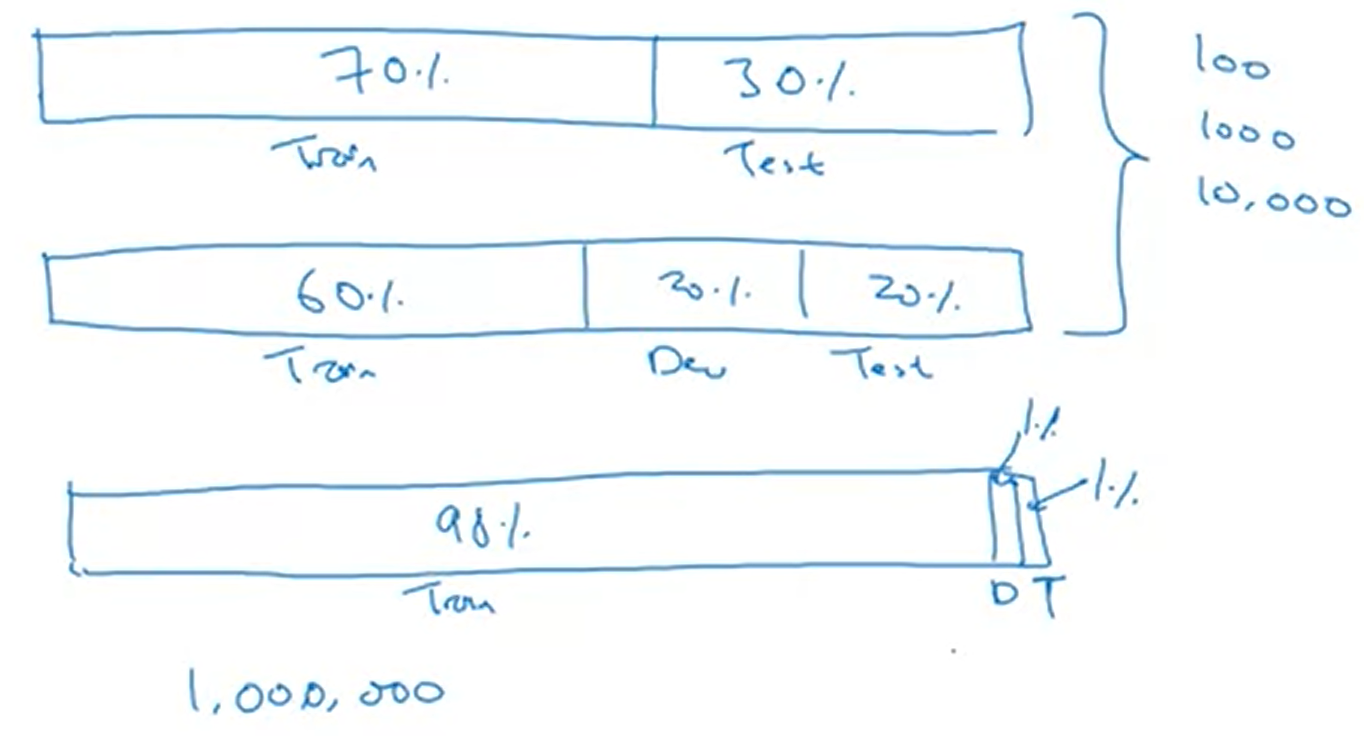 70% 30%
Train Test
100
1000
10,000
60% 20% 20%
Train Dev Test
1%
1%
98%
Train D T
1,000,000